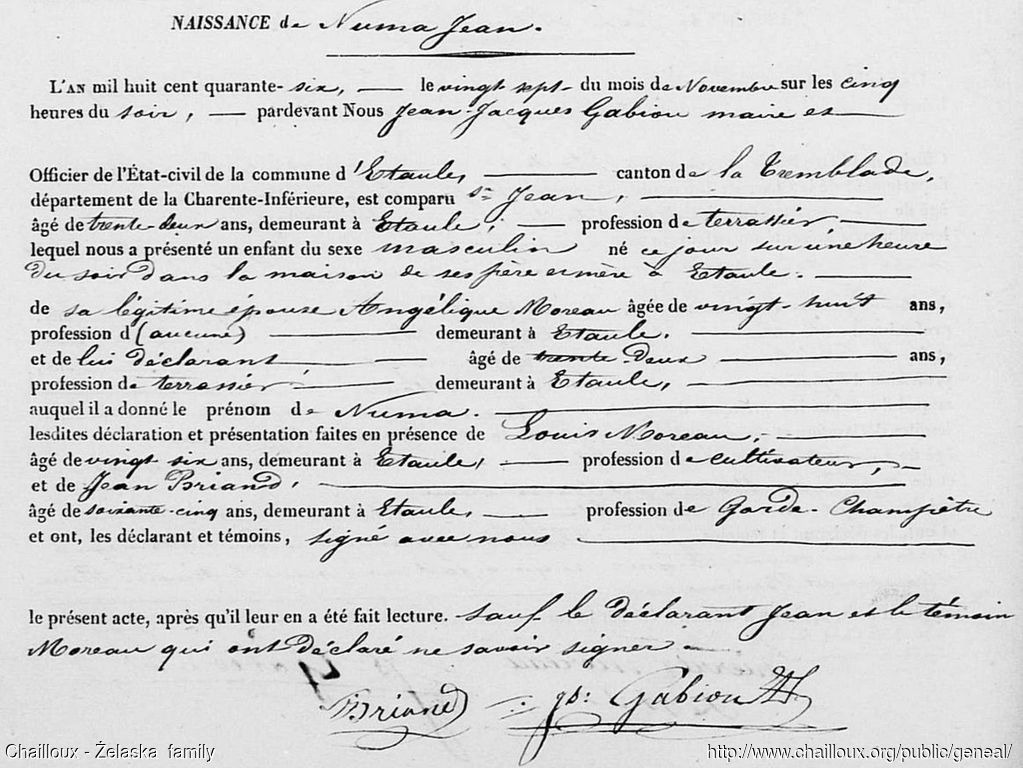 NAISSANCE de Numa Jean.
L'AN mil huit cent quarante-six, — le vingt sept du mois de Novembre sur les cinq
heures du soir, — pardevant Nous Jean Jacques Gabiou maire et
Officier de l'État-civil de la commune d'Etaules canton de la Tremblade,
département de la Charente-Inférieure, est comparu Sr. Jean,
âgé de trente-deux ans, demeurant à Etaule, — profession de terrassier
lequel nous a présenté un enfant du sexe masculin né ce jour sur une heure
du soir dans la maison de ses père et mère à Etaule.
de sa légitime épouse Angélique Moreau âgée de vingt-huit ans,
profession d (aucune) demeurant à Etaule,
et de lui déclarant âgé de trente-deux ans,
profession de terrassier demeurant à Etaule,
auquel il a donné le prénom de Numa.
lesdites déclaration et présentation faites en présence de Louis Moreau,
âgé de vingt six ans, demeurant à Etaule, — profession de cultivateur,
et de Jean Briand,
âgé de soixante-cinq ans, demeurant à Etaules profession de Garde-Champêtre
et ont, les déclarant et témoins, signé avec nous
le présent acte, après qu'il leur en a été fait lecture. sauf le déclarant Jean et le témoin
Moreau qui ont déclaré ne savoir signer
Briand Gabiou
Chailloux - Żelaska family
http://www.chailloux.org/public/geneal/